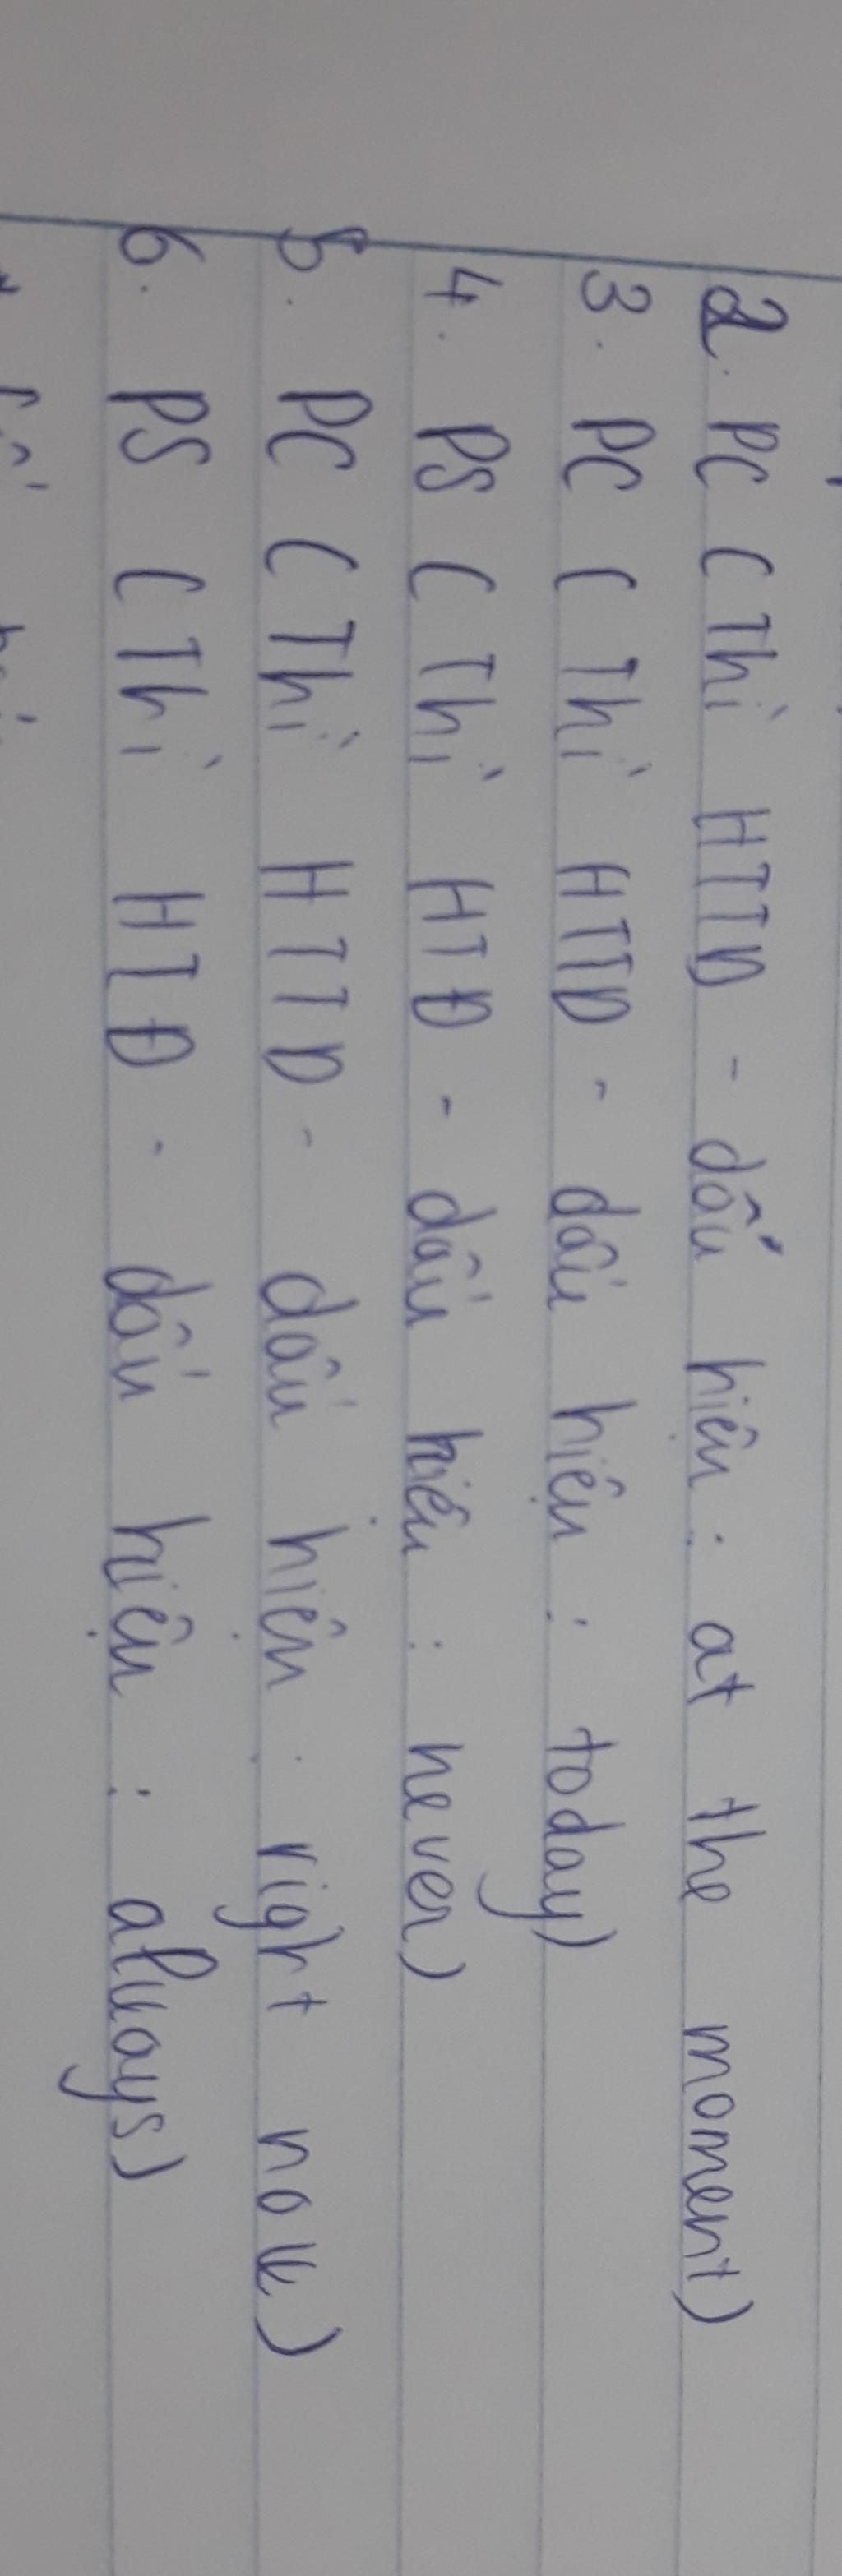 2. PC ( Thì HTTD - dấu hiệu : at the moment)
3. PC ( Thì HTTD - dấu hiệu : today)
4. PS ( Thì HTĐ - dấu hiệu : never)
5. PC ( Thì HTTD - dấu hiện : right now)
6. PS ( Thì HTĐ - dấu hiệu : always)